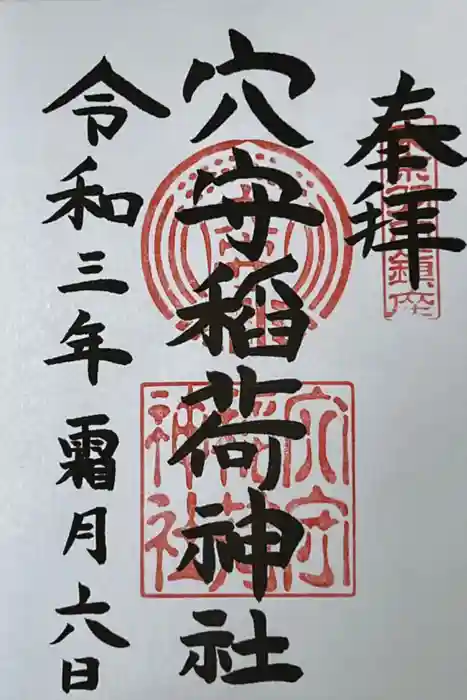 奉拝
鎮座
穴守稲荷神社
穴守
稲荷
神社
令和三年霜月六日